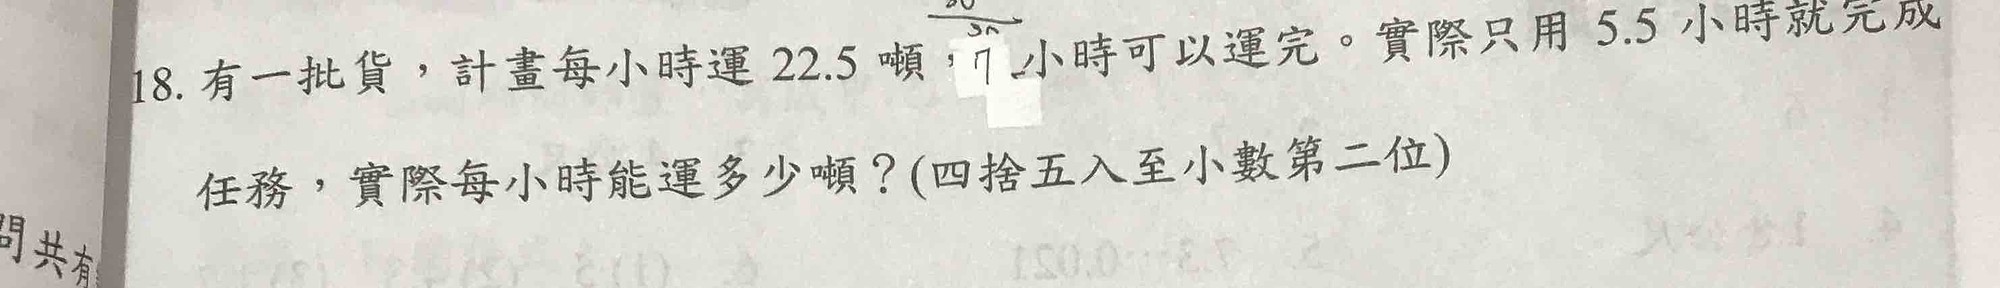 18. 有一批貨，計畫每小時運 22.5 噸，7 小時可以運完。實際只用 5.5 小時就完成
任務，實際每小時能運多少噸？(四捨五入至小數第二位)
問共有